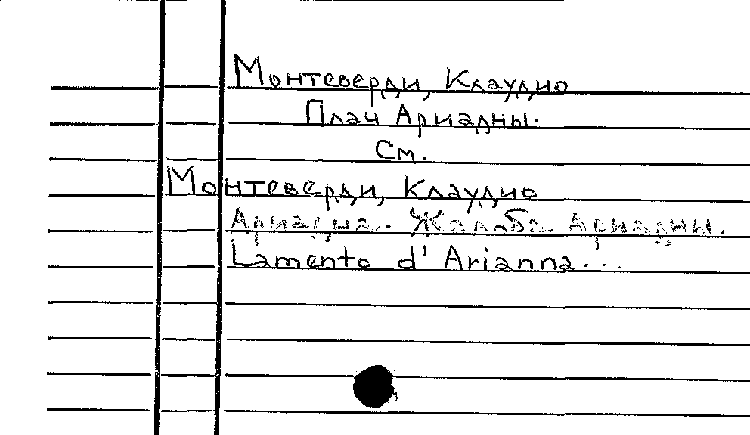 Монтеверди, Клаудио
Плач Ариадны.
См.
Монтеверди, Клаудио
Ариадна. Жалоба Ариадны.
Lamento d' Arianna...